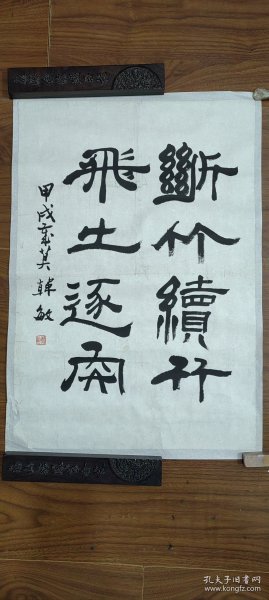 斷竹續竹
飛土逐宍
甲戌歲莫韓敏
孔夫子旧书网
www.kongfz.com